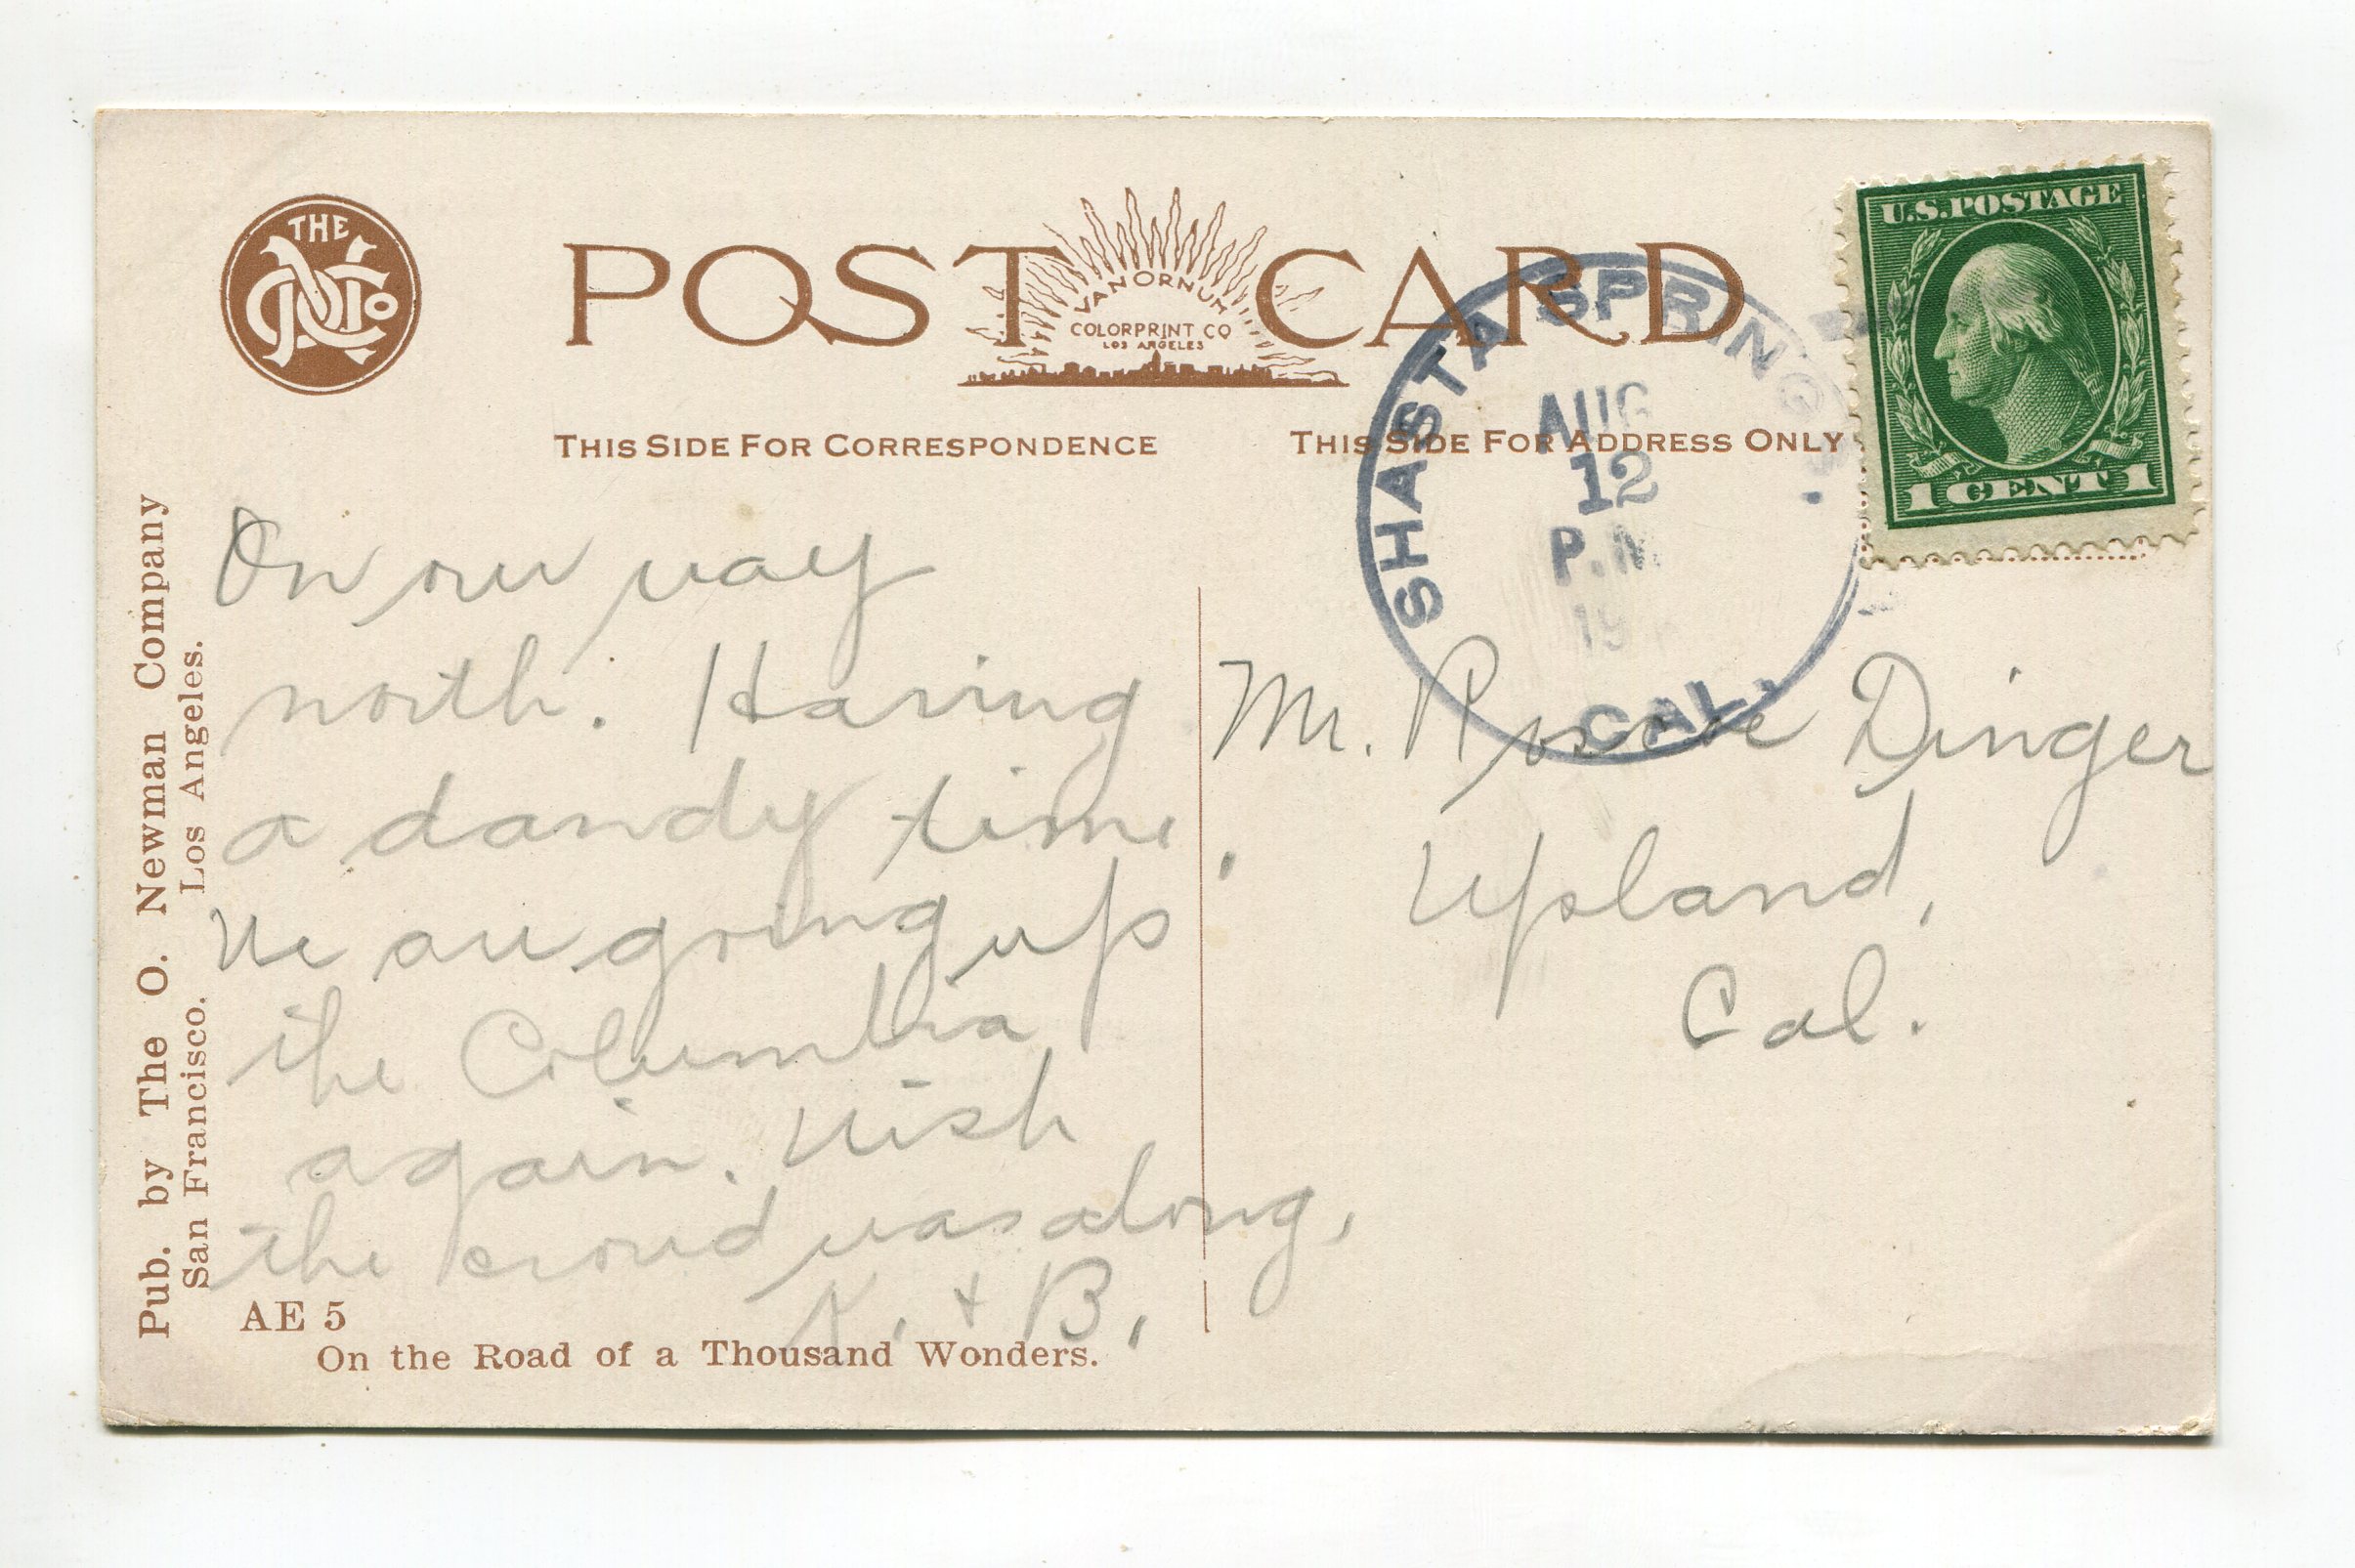 THE
POST CARD
VAN ORNUM
COLORPRINT CO
LOS ANGELES
U.S. POSTAGE
1 CENT 1
SHASTA SPRINGS
AUG
12
P.M
19
CAL.
THIS SIDE FOR CORRESPONDENCE
THIS SIDE FOR ADDRESS ONLY
Pub. by The O. Newman Company
San Francisco. Los Angeles.
On our way
north. Having
a dandy time.
We are going up
the Columbia
again. Wish
the crowd was along.
K. + B.
Mr. Roscoe Dinger
Upland,
Cal.
AE 5
On the Road of a Thousand Wonders.